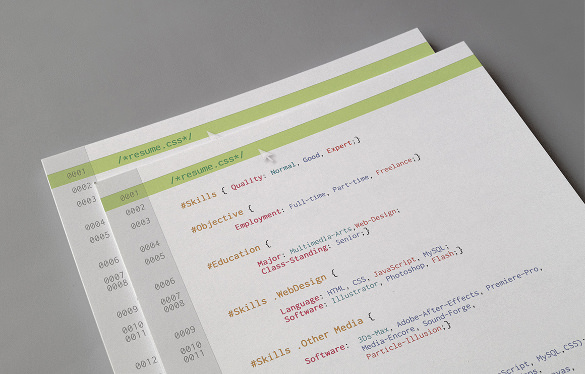 0001
/*resume.css*/
0002
0003
0004
0005
0006
0007
0008
0009
0010
0011
0012
0001
/*resume.css*/
0002
#Skills { Quality: Normal, Good, Expert;}
0003
#Objective {
Employment: Full-time, Part-time, Freelance;}
0004
#Education {
0005
Major: Multimedia-Arts,Web-Design;
Class-Standing: Senior;}
0006
#Skills .WebDesign {
0007
Language: HTML, CSS, JavaScript, MySQL;
0008
Software: Illustrator, Photoshop, Flash;}
0009
#Skills .Other Media {
0010
Software: 3Ds-Max, Adobe-After-Effects, Premiere-Pro,
0011
Media-Encore, Sound-Forge,
Particle-Illusion;}
JavaScript, MySQL,CSS);